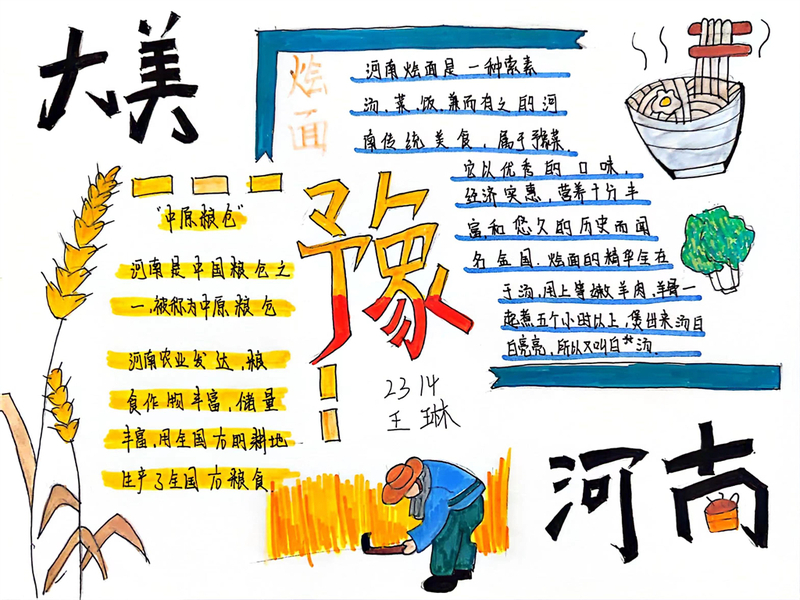 大美
烩面
河南烩面是一种荤素
汤、菜、饭兼而有之的河
南传统美食，属于豫菜。
它以优秀的口味，
经济实惠，营养十分丰
富,和悠久的历史而闻
名全国.烩面的精华全在
于汤,用上等嫩羊肉,羊骨一
起煮五个小时以上,煲出来汤白
白亮亮,所以又叫白**汤.
豫
"中原粮仓"
河南是中国粮仓之
一,被称为中原粮仓
河南农业发达,粮
食作物丰富,储量
丰富,用全国的耕地
生产了全国粮食
2314
王琳
河南